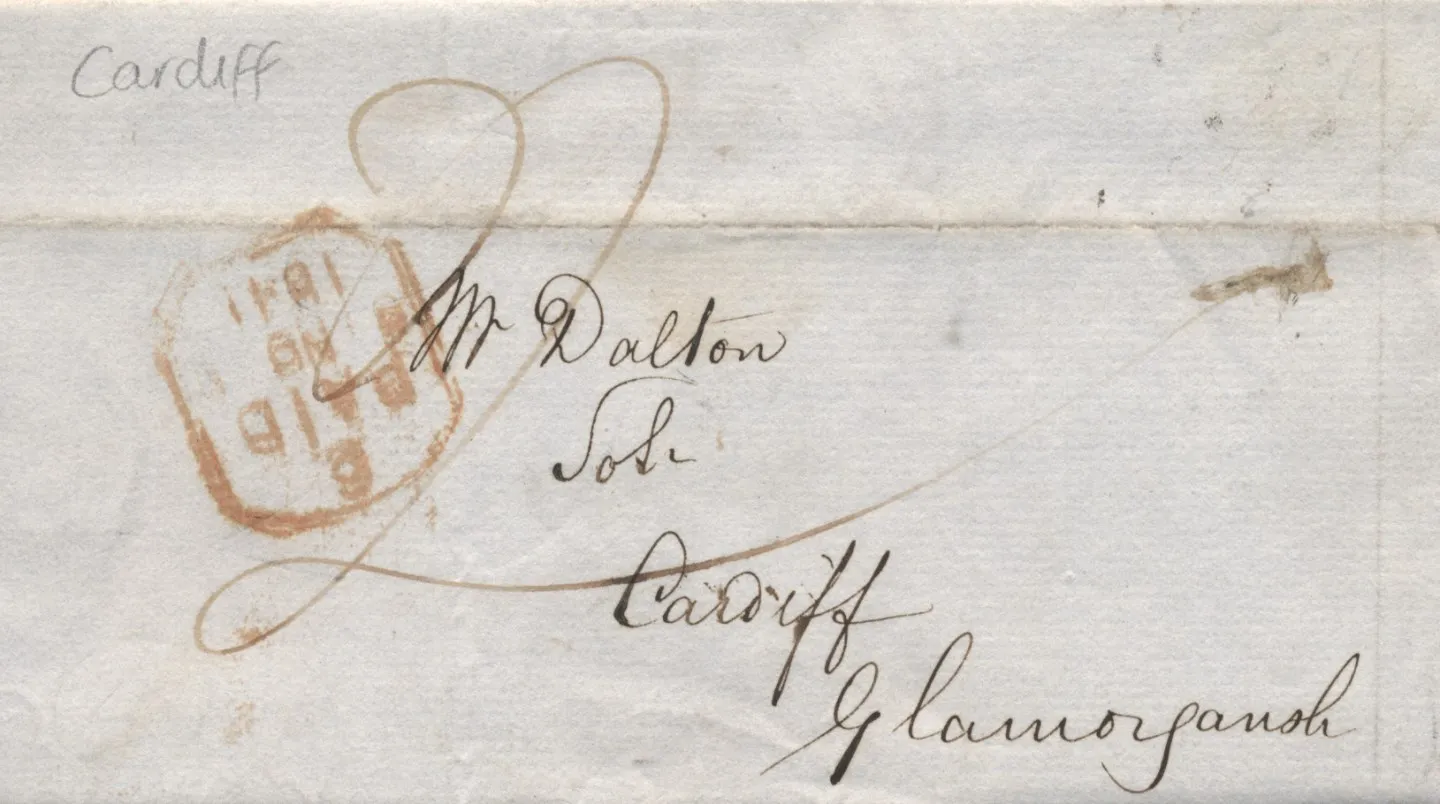 Cardiff
PAID
1841
Mr Dalton
Solr
Cardiff
Glamorgansh